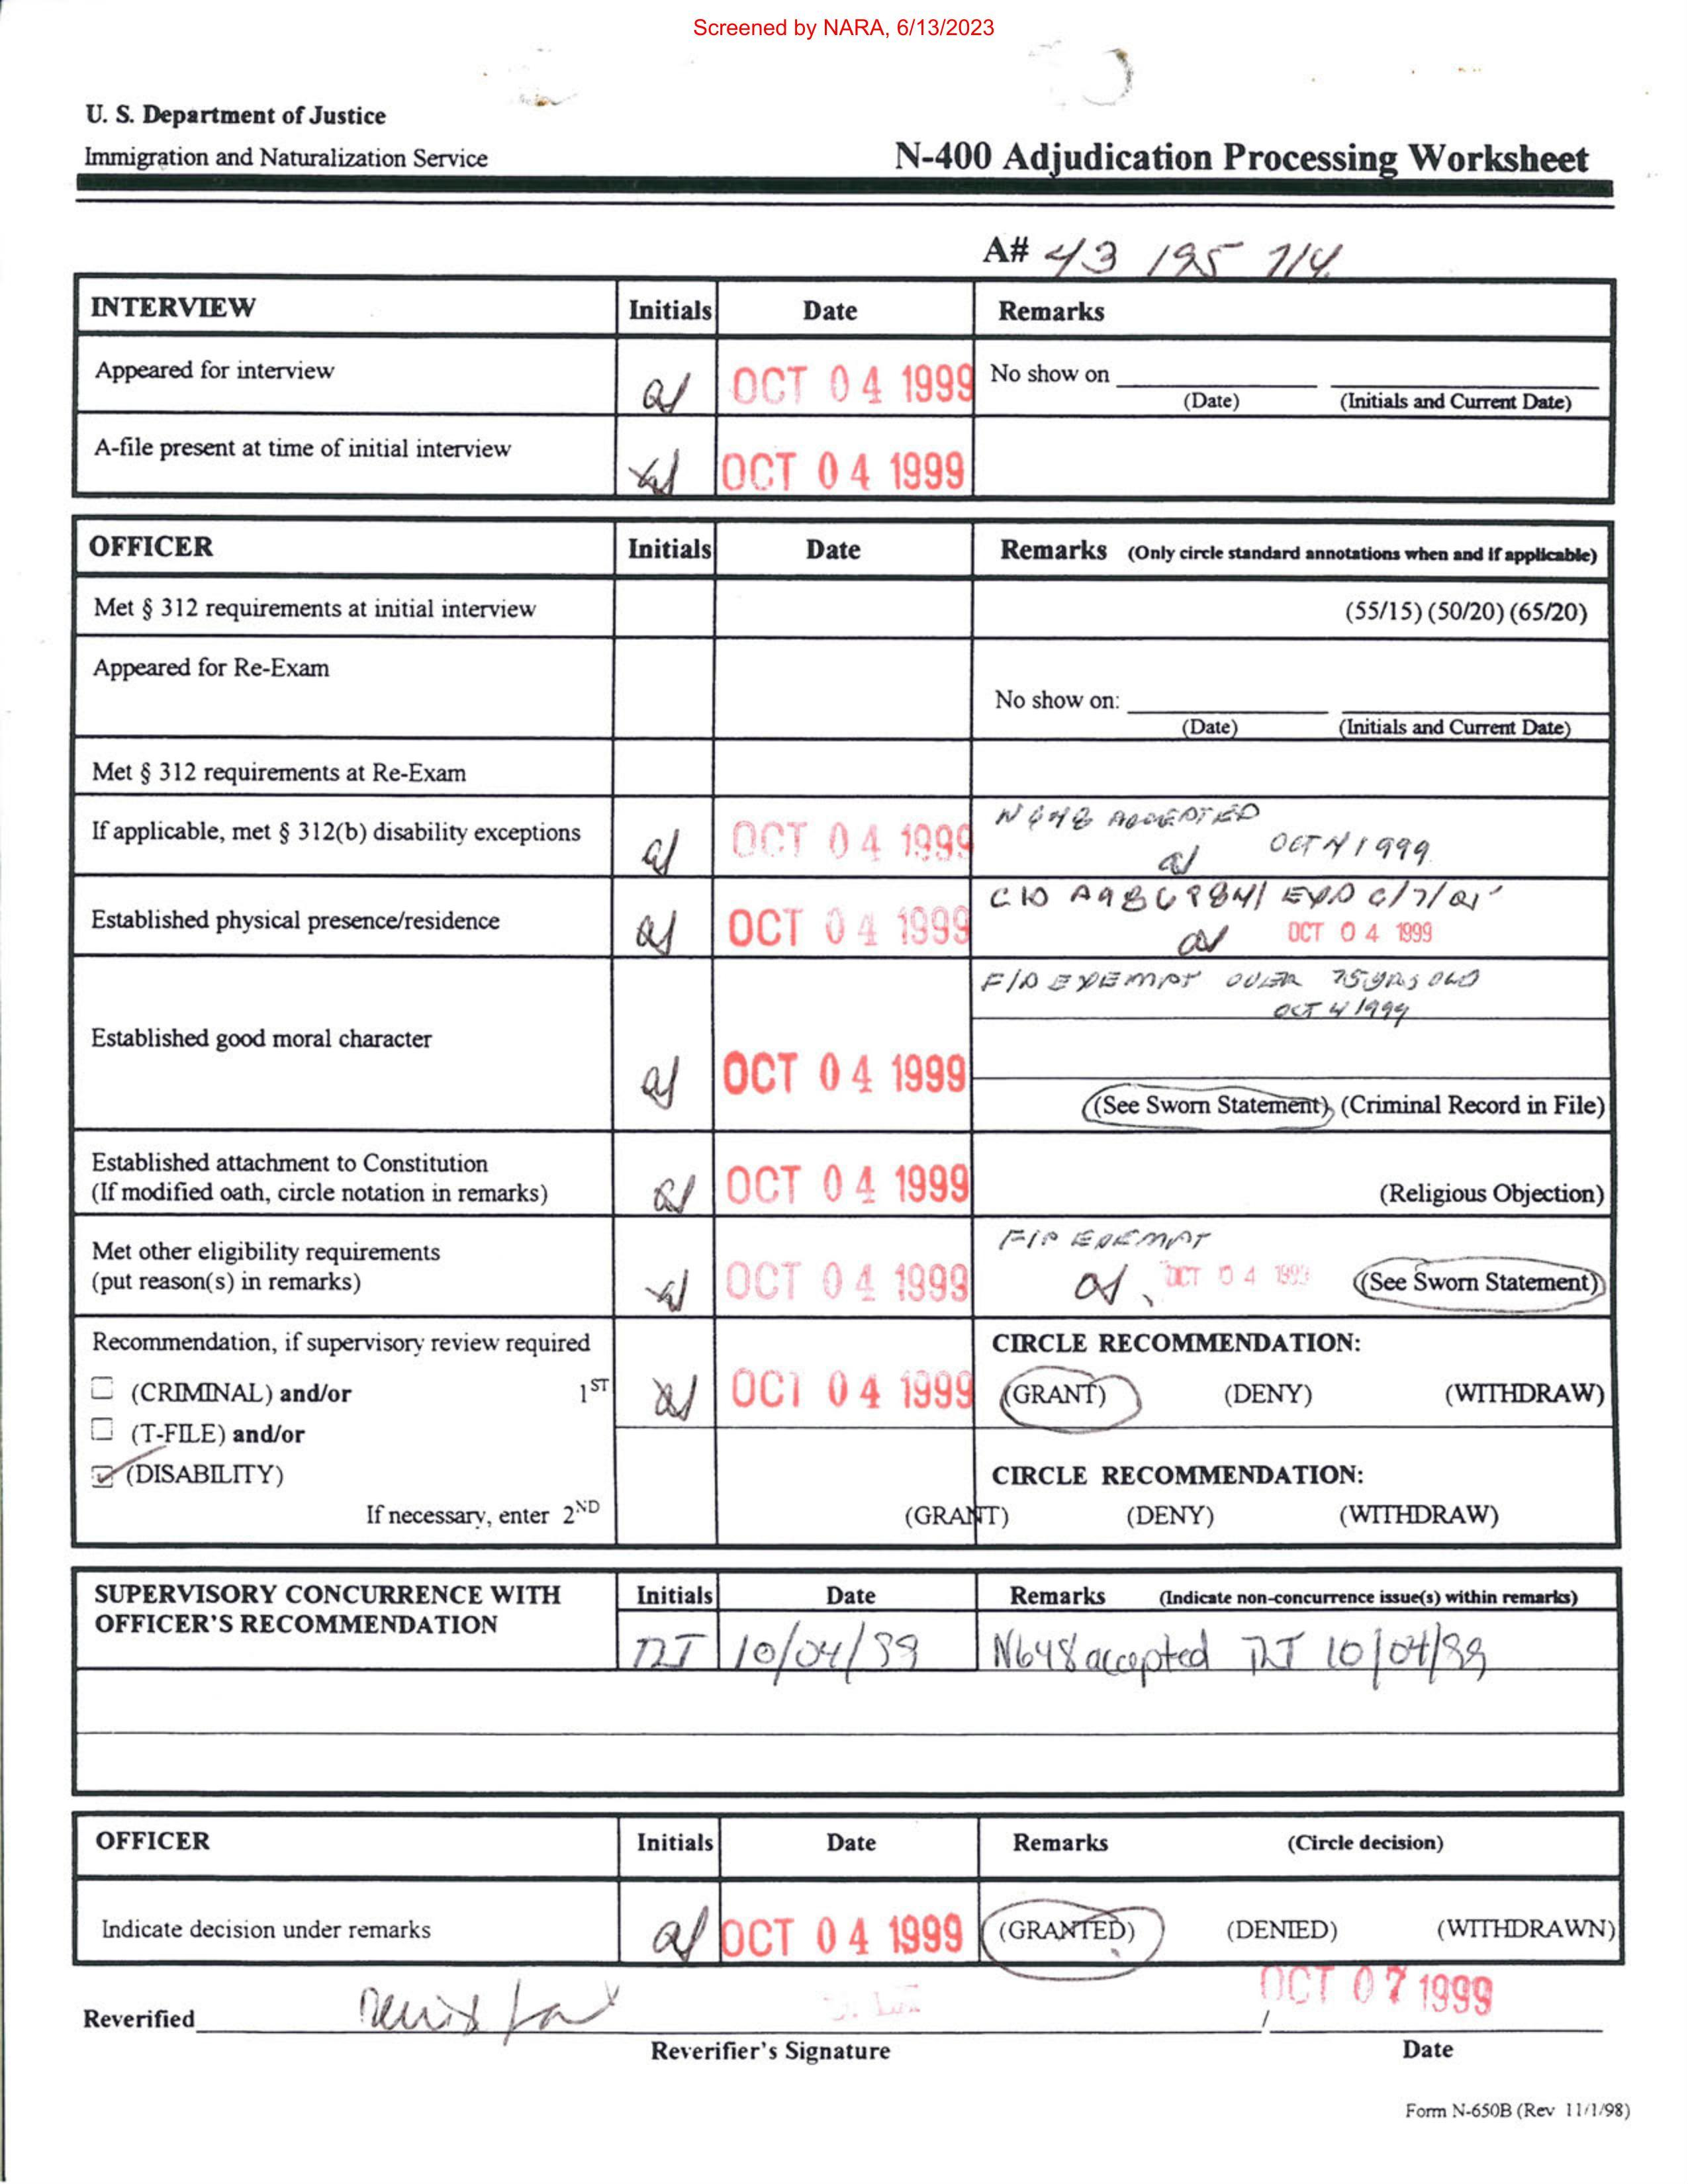 Screened by NARA, 6/13/2023
U. S. Department of Justice
Immigration and Naturalization Service
N-400 Adjudication Processing Worksheet
A# 43 195 714
INTERVIEW Initials Date Remarks
Appeared for interview OCT 04 1999 No show on
(Date) (Initials and Current Date)
A-file present at time of initial interview OCT 04 1999
OFFICER Initials Date Remarks (Only circle standard annotations when and if applicable)
Met § 312 requirements at initial interview (55/15) (50/20) (65/20)
Appeared for Re-Exam
No show on:
(Date) (Initials and Current Date)
Met § 312 requirements at Re-Exam
N648 ACCEPTED
If applicable, met § 312(b) disability exceptions OCT 04 1999 OCT 4 1999
Established physical presence/residence OCT 04 1999
OCT 04 1999
F/P EXEMPT OVER 75 YRS OLD
OCT 4 1999
Established good moral character OCT 04 1999
(See Sworn Statement), (Criminal Record in File)
Established attachment to Constitution
(If modified oath, circle notation in remarks) OCT 04 1999 (Religious Objection)
F/P EXEMPT
Met other eligibility requirements
(put reason(s) in remarks) OCT 04 1999 OCT 04 1999 (See Sworn Statement)
Recommendation, if supervisory review required CIRCLE RECOMMENDATION:
(CRIMINAL) and/or 1ST OCT 04 1999 (GRANT) (DENY) (WITHDRAW)
(T-FILE) and/or
(DISABILITY) CIRCLE RECOMMENDATION:
If necessary, enter 2ND (GRANT) (DENY) (WITHDRAW)
SUPERVISORY CONCURRENCE WITH Initials Date Remarks (Indicate non-concurrence issue(s) within remarks)
OFFICER'S RECOMMENDATION
10/04/99 N648 accepted 10/04/99
OFFICER Initials Date Remarks (Circle decision)
Indicate decision under remarks OCT 04 1999 (GRANTED) (DENIED) (WITHDRAWN)
OCT 07 1999
Reverified /
Reverifier's Signature Date
Form N-650B (Rev 11/1/98)